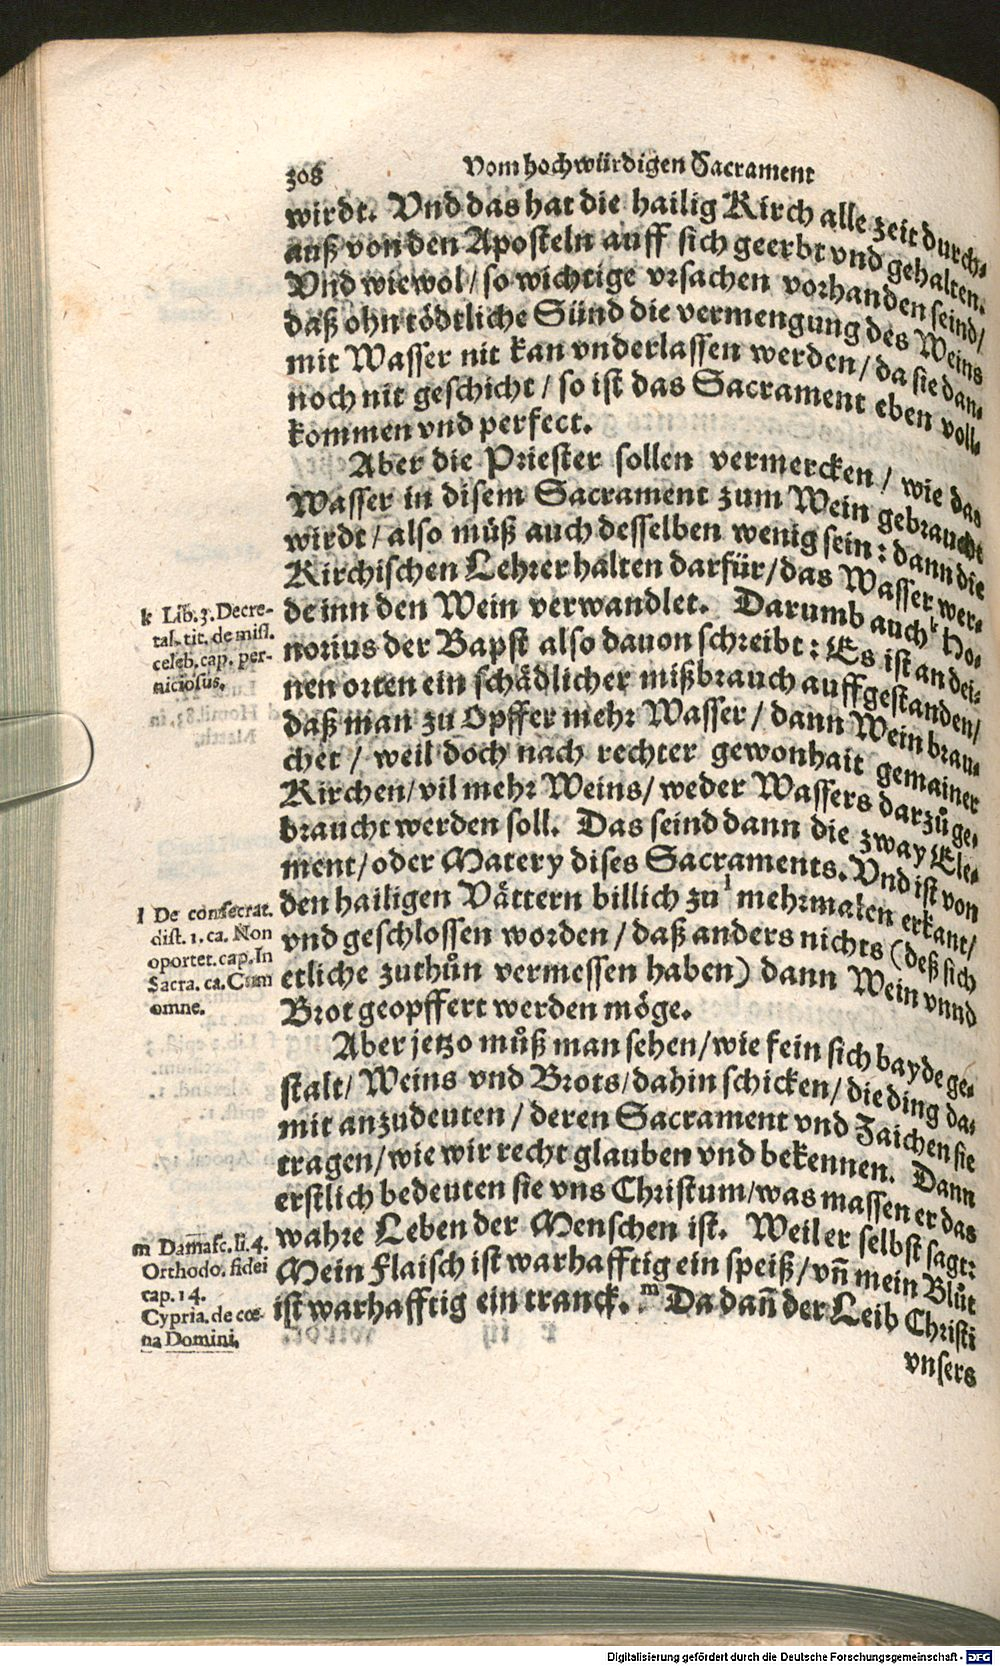 308 Vom hochwürdigen Sacrament
wirdt. Vnd das hat die hailig Kirch alle zeit durch-
auß von den Aposteln auff sich geerbt vnd gehalten.
Vnd wiewol / so wichtige vrsachen vorhanden seind /
daß ohn tödtliche Sünd die vermengung des Weins
mit Wasser nit kan vnderlassen werden / da sie dan-
noch nit geschicht / so ist das Sacrament eben voll-
kommen vnd perfect.
Aber die Priester sollen vermercken / wie das
Wasser in disem Sacrament zum Wein gebraucht
wirdt / also muß auch desselben wenig sein: dann die
Kirchischen Lehrer halten darfür / das Wasser wer-
de inn den Wein verwandlet. Darumb auch k Ho-
norius der Bapst also dauon schreibt: Es ist an dei-
nen orten ein schädlicher mißbrauch auffgestanden /
daß man zu Opffer mehr Wasser / dann Wein brau-
chet / weil doch nach rechter gewonhait gemainer
Kirchen / vil mehr Weins / weder Wassers darzů ge-
braucht werden soll. Das seind dann die zway Ele-
ment / oder Matery dises Sacraments. Vnd ist von
den hailigen Vättern billich zu l mehrmalen erkant /
vnd geschlossen worden / daß anders nichts (deß sich
etliche zuthůn vermessen haben) dann Wein vnnd
Brot geopffert werden möge.
Aber jetzo můß man sehen / wie fein sich bayde ge-
stalt / Weins vnd Brots / dahin schicken / die ding da-
mit anzudeuten / deren Sacrament vnd Zaichen sie
tragen / wie wir recht glauben vnd bekennen. Dann
erstlich bedeuten sie vns Christum / was massen er das
wahre Leben der Menschen ist. Weil er selbst sagt:
Mein Flaisch ist warhafftig ein speiß / vñ mein Blůt
ist warhafftig ein tranck. m Da dañ der Leib Christi
vnsers
k Lib. 3. Decre-
tal. tit. de miss.
celeb. cap. per-
niciosus.
l De consecrat.
dist. 1. ca. Non
oportet. cap. In
Sacra. ca. Cum
omne.
m Damasc. li. 4.
Orthodo. fidei
cap. 14.
Cypria. de cœ-
na Domini.
Digitalisierung gefördert durch die Deutsche Forschungsgemeinschaft - DFG